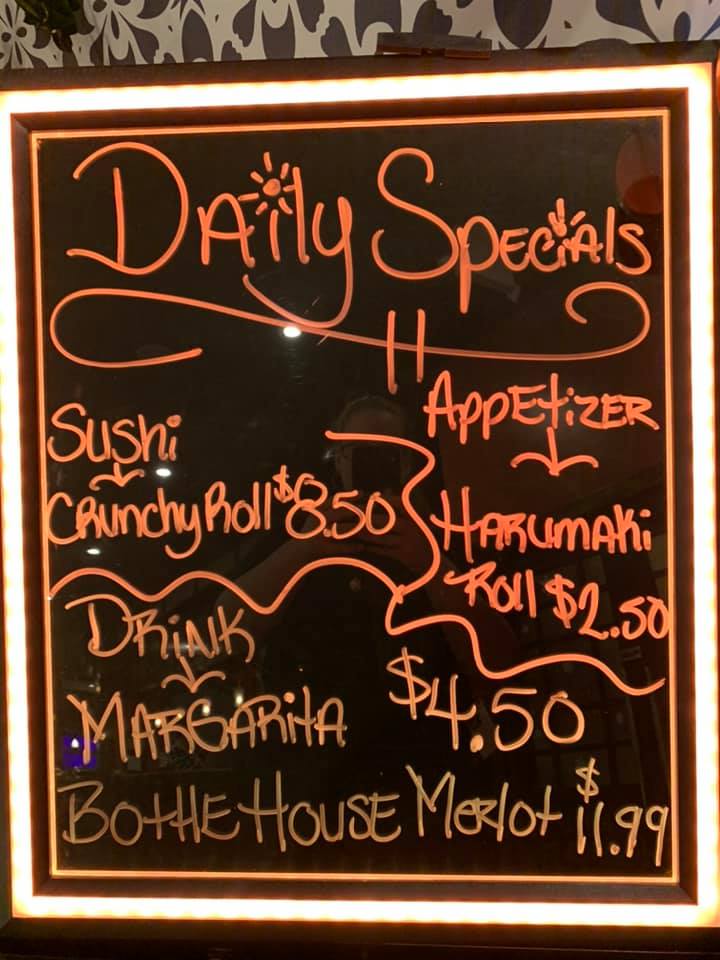 Daily Specials
Sushi
Crunchy Roll $8.50
Appetizer
Harumaki
Roll $2.50
Drink
Margarita $4.50
Bottle House Merlot $11.99